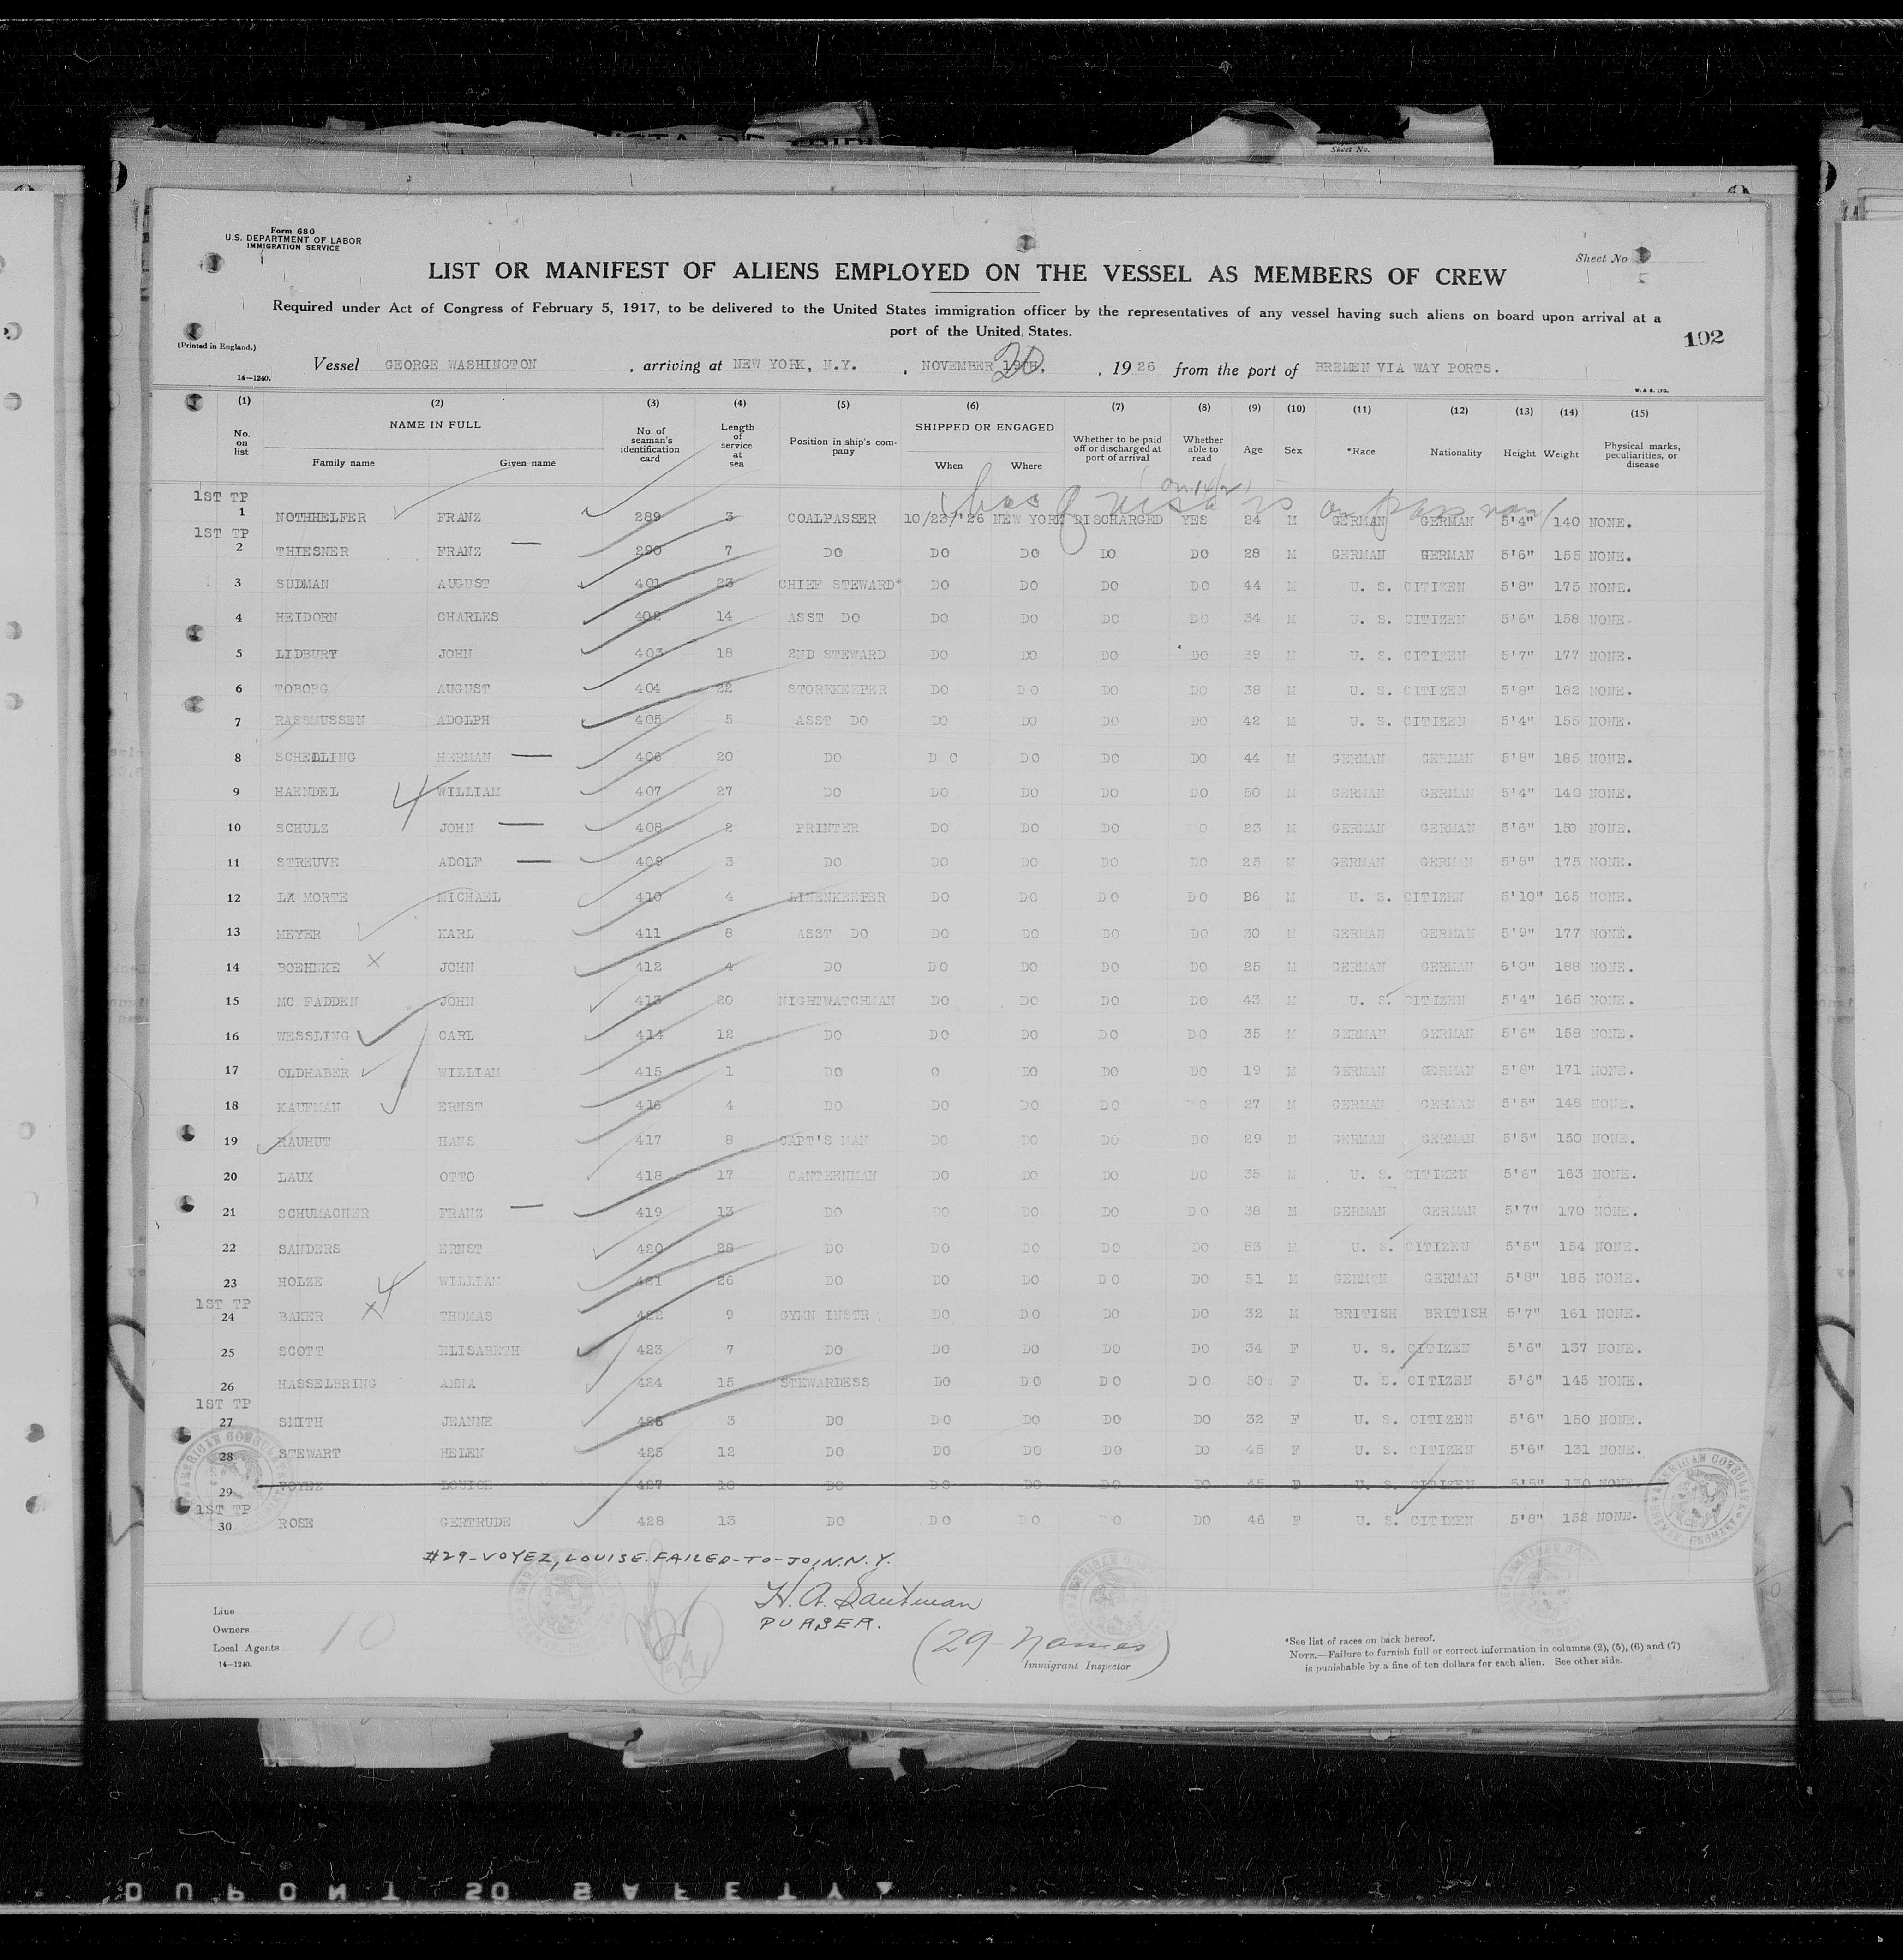 Sheet No.
Form 680
U.S. DEPARTMENT OF LABOR
IMMIGRATION SERVICE
Sheet No
LIST OR MANIFEST OF ALIENS EMPLOYED ON THE VESSEL AS MEMBERS OF CREW
Required under Act of Congress of February 5, 1917, to be delivered to the United States immigration officer by the representatives of any vessel having such aliens on board upon arrival at a
port of the United States.
102
(Printed in England.)
Vessel GEORGE WASHINGTON , arriving at NEW YORK, N.Y. , NOVEMBER 19TH, 20 , 1926 from the port of BREMEN VIA WAY PORTS.
14—1240.
W. & S. LTD.
(1) (2) (3) (4) (5) (6) (7) (8) (9) (10) (11) (12) (13) (14) (15)
No. on list NAME IN FULL Family name Given name No. of seaman's identification card Length of service at sea Position in ship's company SHIPPED OR ENGAGED When Where Whether to be paid off or discharged at port of arrival Whether able to read Age Sex *Race Nationality Height Weight Physical marks, peculiarities, or disease
1ST TP
1 NOTHHELFER FRANZ 289 3 COALPASSER 10/23/'26 NEW YORK DISCHARGED YES 24 M GERMAN GERMAN 5'4" 140 NONE.
1ST TP
2 THIESNER FRANZ 290 7 DO DO DO DO DO 28 M GERMAN GERMAN 5'6" 155 NONE.
3 SUDMAN AUGUST 401 23 CHIEF STEWARD* DO DO DO DO 44 M U. S. CITIZEN 5'8" 175 NONE.
4 HEIDORN CHARLES 402 14 ASST DO DO DO DO DO 34 M U. S. CITIZEN 5'6" 158 NONE.
5 LIDBURY JOHN 403 18 2ND STEWARD DO DO DO DO 39 M U. S. CITIZEN 5'7" 177 NONE.
6 TOBORG AUGUST 404 22 STOREKEEPER DO DO DO DO 38 M U. S. CITIZEN 5'8" 182 NONE.
7 RASSMUSSEN ADOLPH 405 5 ASST DO DO DO DO DO 42 M U. S. CITIZEN 5'4" 155 NONE.
8 SCHEDLING HERMAN 406 20 DO D O DO DO DO 44 M GERMAN GERMAN 5'8" 185 NONE.
9 HAENDEL WILLIAM 407 27 DO DO DO DO DO 50 M GERMAN GERMAN 5'4" 140 NONE.
10 SCHULZ JOHN 408 2 PRINTER DO DO DO O 23 M GERMAN GERMAN 5'6" 150 NONE.
11 STREUVE ADOLF 409 3 DO DO DO DO DO 25 M GERMAN GERMAN 5'8" 175 NONE.
12 LA MORTE MICHAEL 410 4 LINENKEEPER DO DO DO DO 26 M U. S. CITIZEN 5'10" 165 NONE.
13 MEYER KARL 411 8 ASST DO DO DO DO DO 30 M GERMAN GERMAN 5'9" 177 NONE.
14 BOEHNKE JOHN 412 4 DO DO DO DO DO 25 M GERMAN GERMAN 6'0" 188 NONE.
15 MC FADDEN JOHN 413 20 NIGHTWATCHMAN DO DO DO DO 43 M U. S. CITIZEN 5'4" 165 NONE.
16 WESSLING CARL 414 12 DO DO DO DO DO 35 M GERMAN GERMAN 5'6" 158 NONE.
17 OLDHABER WILLIAM 415 1 DO O DO DO DO 19 M GERMAN GERMAN 5'8" 171 NONE.
18 KAUFMAN ERNST 416 4 DO DO DO DO DO 27 M GERMAN GERMAN 5'5" 148 NONE.
19 RAUHUT HANS 417 8 CAPT'S MAN DO DO DO DO 29 M GERMAN GERMAN 5'5" 150 NONE.
20 LAUX OTTO 418 17 CANTEENMAN DO DO DO DO 35 M U. S. CITIZEN 5'6" 163 NONE.
21 SCHUMACHER FRANZ 419 13 DO DO DO DO DO 38 M GERMAN GERMAN 5'7" 170 NONE.
22 SANDERS ERNST 420 28 DO DO DO DO DO 53 M U. S. CITIZEN 5'5" 154 NONE.
23 HOLZE WILLIAM 421 26 DO DO DO DO DO 51 M GERMAN GERMAN 5'8" 185 NONE.
1ST TP
24 BAKER THOMAS 422 9 GYMN INSTR DO DO DO DO 32 M BRITISH BRITISH 5'7" 161 NONE.
25 SCOTT ELISABETH 423 7 DO DO DO DO DO 34 F U. S. CITIZEN 5'6" 137 NONE.
26 HASSELBRING ANNA 424 15 STEWARDESS DO DO DO DO 50 F U. S. CITIZEN 5'6" 145 NONE.
1ST TP
27 SMITH JEANNE 426 3 DO DO DO DO DO 32 F U. S. CITIZEN 5'6" 150 NONE.
28 STEWART HELEN 425 12 DO DO DO DO DO 45 F U. S. CITIZEN 5'6" 131 NONE.
29 VOYEZ LOUISE 427 10 DO DO DO DO DO 45 F U. S. CITIZEN 5'5" 130 NONE.
1ST TP
30 ROSE GERTRUDE 428 13 DO DO DO DO DO 46 F U. S. CITIZEN 5'8" 152 NONE.
#29-VOYEZ, LOUISE. FAILED-TO-JOIN. N.Y.
H. A. Lautman
PURSER.
(29 Names)
Immigrant Inspector
Line
Owners
Local Agents
14—1240.
10
*See list of races on back hereof.
NOTE.—Failure to furnish full or correct information in columns (2), (5), (6) and (7)
is punishable by a fine of ten dollars for each alien. See other side.
DUPONT 20 SAFETY